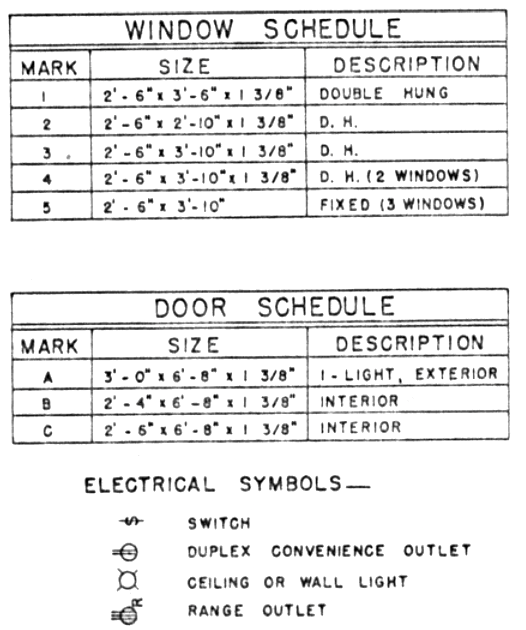 WINDOW SCHEDULE
MARK SIZE DESCRIPTION
1 2'-6" x 3'-6" x 1 3/8" DOUBLE HUNG
2 2'-6" x 2'-10" x 1 3/8" D. H.
3 2'-6" x 3'-10" x 1 3/8" D. H.
4 2'-6" x 3'-10" x 1 3/8" D. H. (2 WINDOWS)
5 2'-6" x 3'-10" FIXED (3 WINDOWS)
DOOR SCHEDULE
MARK SIZE DESCRIPTION
A 3'-0" x 6'-8" x 1 3/8" 1-LIGHT, EXTERIOR
B 2'-4" x 6'-8" x 1 3/8" INTERIOR
C 2'-6" x 6'-8" x 1 3/8" INTERIOR
ELECTRICAL SYMBOLS—
S SWITCH
DUPLEX CONVENIENCE OUTLET
CEILING OR WALL LIGHT
R RANGE OUTLET